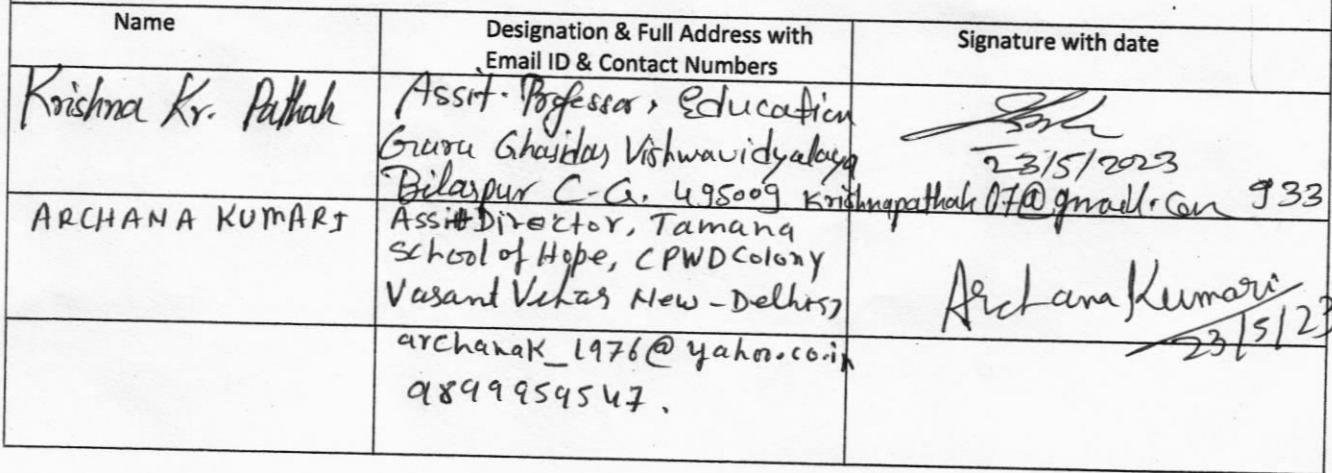 Name
Designation & Full Address with
Email ID & Contact Numbers
Signature with date
Krishna Kr. Pathak
Assit. Professor, Education
Guru Ghasidas Vishwavidyalaya
Bilaspur C.G. 495009 Krishnapathak07@gmail.com 933
23/5/2023
ARCHANA KUMARI
Assit Director, Tamana
School of Hope, CPWD Colony
Vasant Vihar New-Delhi57
archanak_1976@yahoo.co.in
9899959547.
Archana Kumari
23/5/23